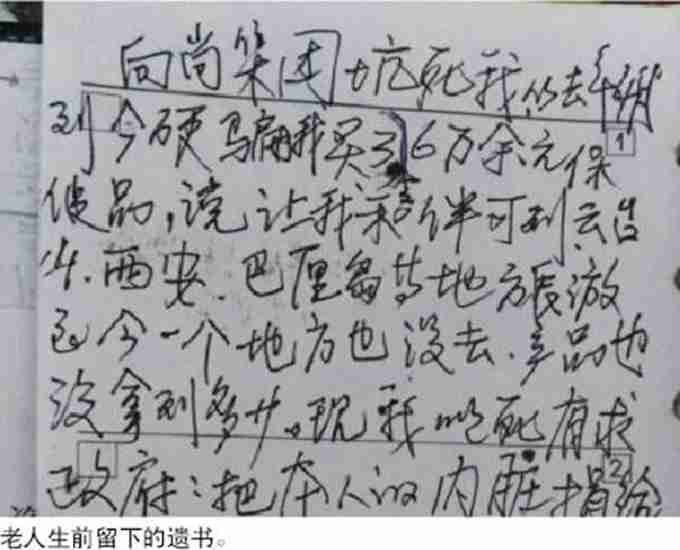 向尚集团坑死我,从去年
到今硬骗我买了6万余元保
健品,说让我和老伴可到云台
山.西安.巴厘岛等地方旅游
至今一个地方也没去.产品也
没拿到多少。现我以死有求
政府:把本人的内脏捐给
1
2
老人生前留下的遗书。